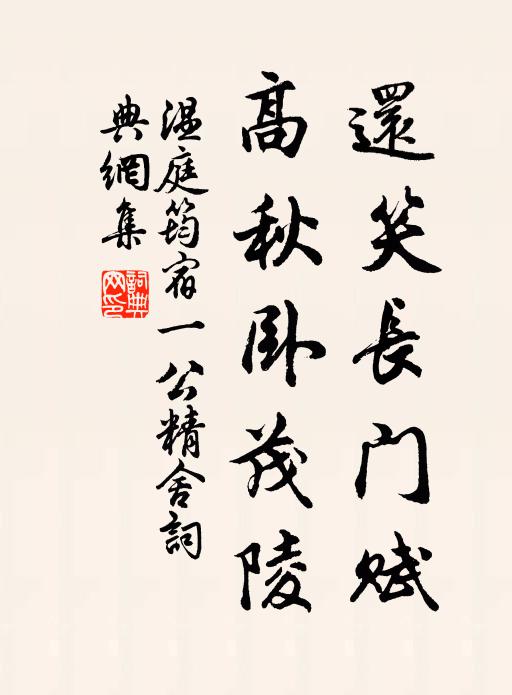 還笑長門賦
高秋臥茂陵
溫庭筠宿一公精舍詞
典網集
詞典
网印